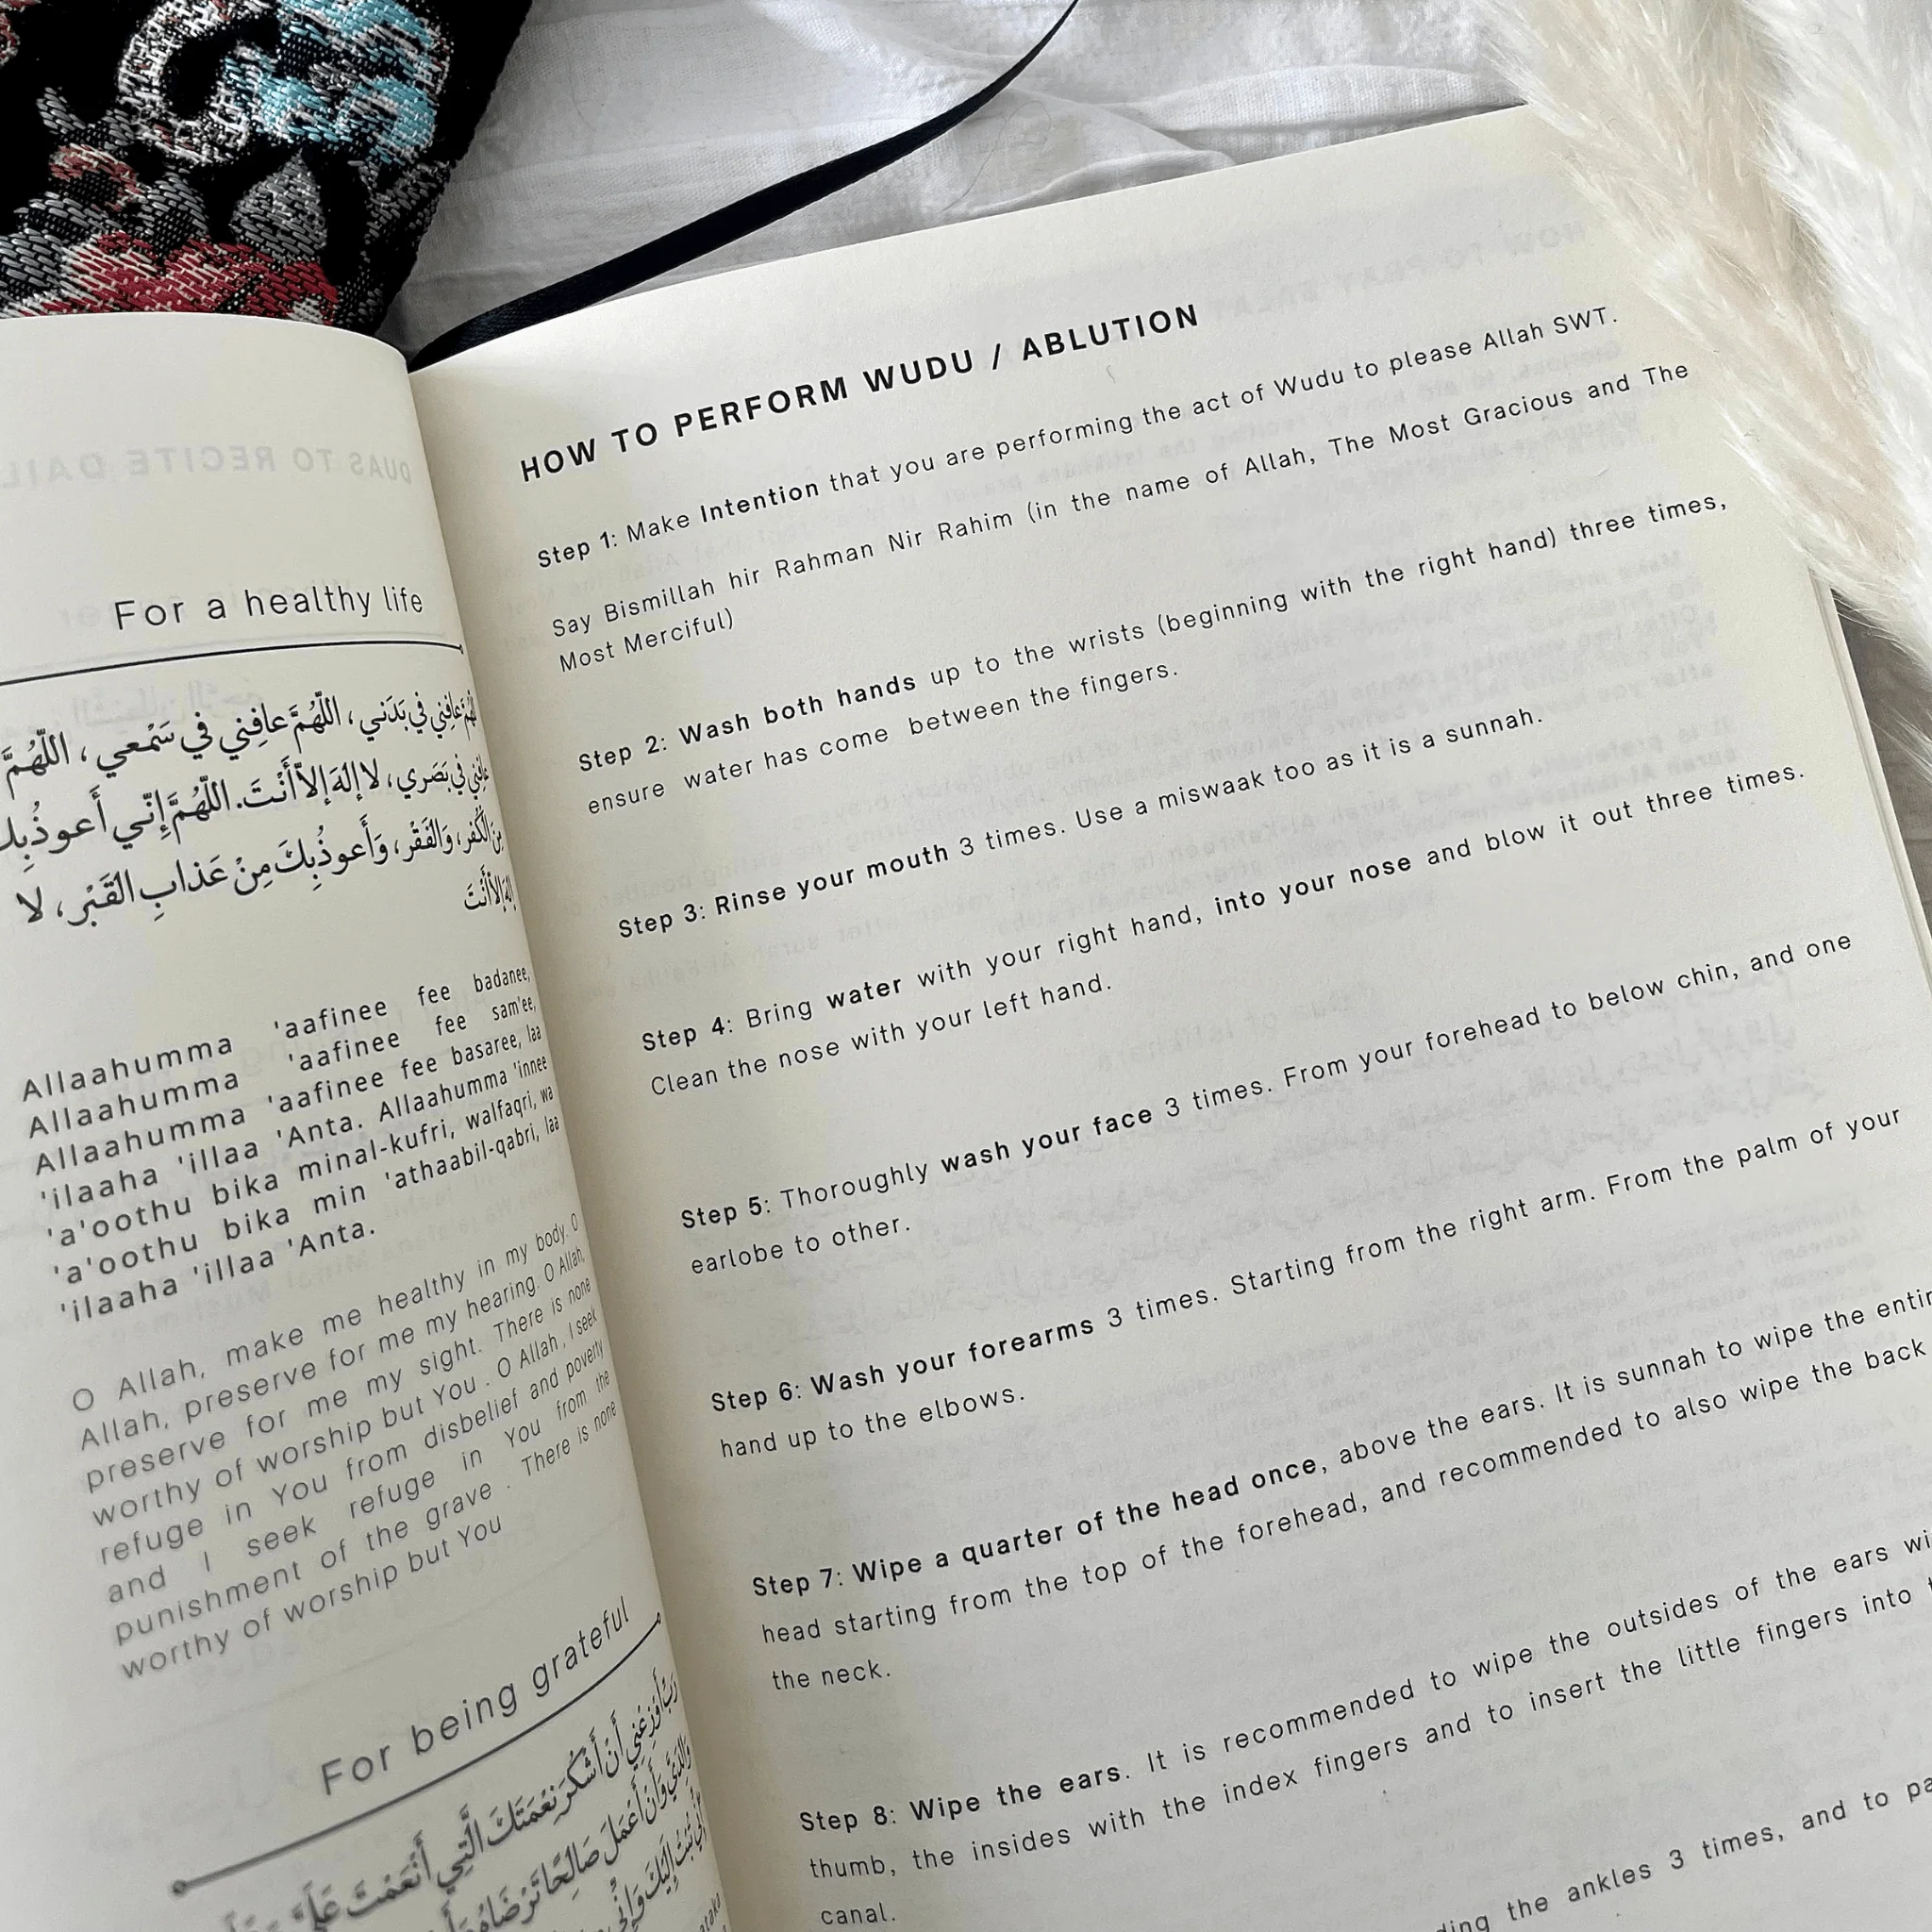 DUAS TO RECITE DAIL
For a healthy life
عافِني في بَدَني، اللّهُمَّ عافِني في سَمْعي، اللّهُمَّ
عافِني في بَصَري، لا إلهَ إلاّ أَنْتَ. اللّهُمَّ إِنّي أَعوذُ بِكَ
مِنَ الْكُفر، وَالفَقْر، وَأَعوذُ بِكَ مِنْ عَذابِ القَبْر، لا
إلهَ إلاّ أَنْتَ
Allaahumma 'aafinee fee badanee,
Allaahumma 'aafinee fee sam'ee,
Allaahumma 'aafinee fee basaree, laa
'ilaaha 'illaa 'Anta. Allaahumma 'innee
'a'oothu bika minal-kufri, walfaqri, wa
'a'oothu bika min 'athaabil-qabri, laa
'ilaaha 'illaa 'Anta.
O Allah, make me healthy in my body. O
Allah, preserve for me my hearing. O Allah,
preserve for me my sight. There is none
worthy of worship but You . O Allah , I seek
refuge in You from disbelief and poverty
and I seek refuge in You from the
punishment of the grave . There is none
worthy of worship but You
For being grateful
رَبِّ أَوْزِعْنِي أَنْ أَشْكُرَ نِعْمَتَكَ الَّتِي أَنْعَمْتَ عَلَيَّ
وَأَنْ أَعْمَلَ صَالِحًا تَرْضَاهُ
إِنِّي تُبْتُ إِلَيْكَ وَإِنِّي
HOW TO PERFORM WUDU / ABLUTION
Step 1: Make Intention that you are performing the act of Wudu to please Allah SWT.
Say Bismillah hir Rahman Nir Rahim (in the name of Allah, The Most Gracious and The
Most Merciful)
Step 2: Wash both hands up to the wrists (beginning with the right hand) three times,
ensure water has come between the fingers.
Step 3: Rinse your mouth 3 times. Use a miswaak too as it is a sunnah.
Step 4: Bring water with your right hand, into your nose and blow it out three times.
Clean the nose with your left hand.
Step 5: Thoroughly wash your face 3 times. From your forehead to below chin, and one
earlobe to other.
Step 6: Wash your forearms 3 times. Starting from the right arm. From the palm of your
hand up to the elbows.
Step 7: Wipe a quarter of the head once, above the ears. It is sunnah to wipe the entir
head starting from the top of the forehead, and recommended to also wipe the back
the neck.
Step 8: Wipe the ears. It is recommended to wipe the outsides of the ears wi
thumb, the insides with the index fingers and to insert the little fingers into
canal.
ding the ankles 3 times, and to pa